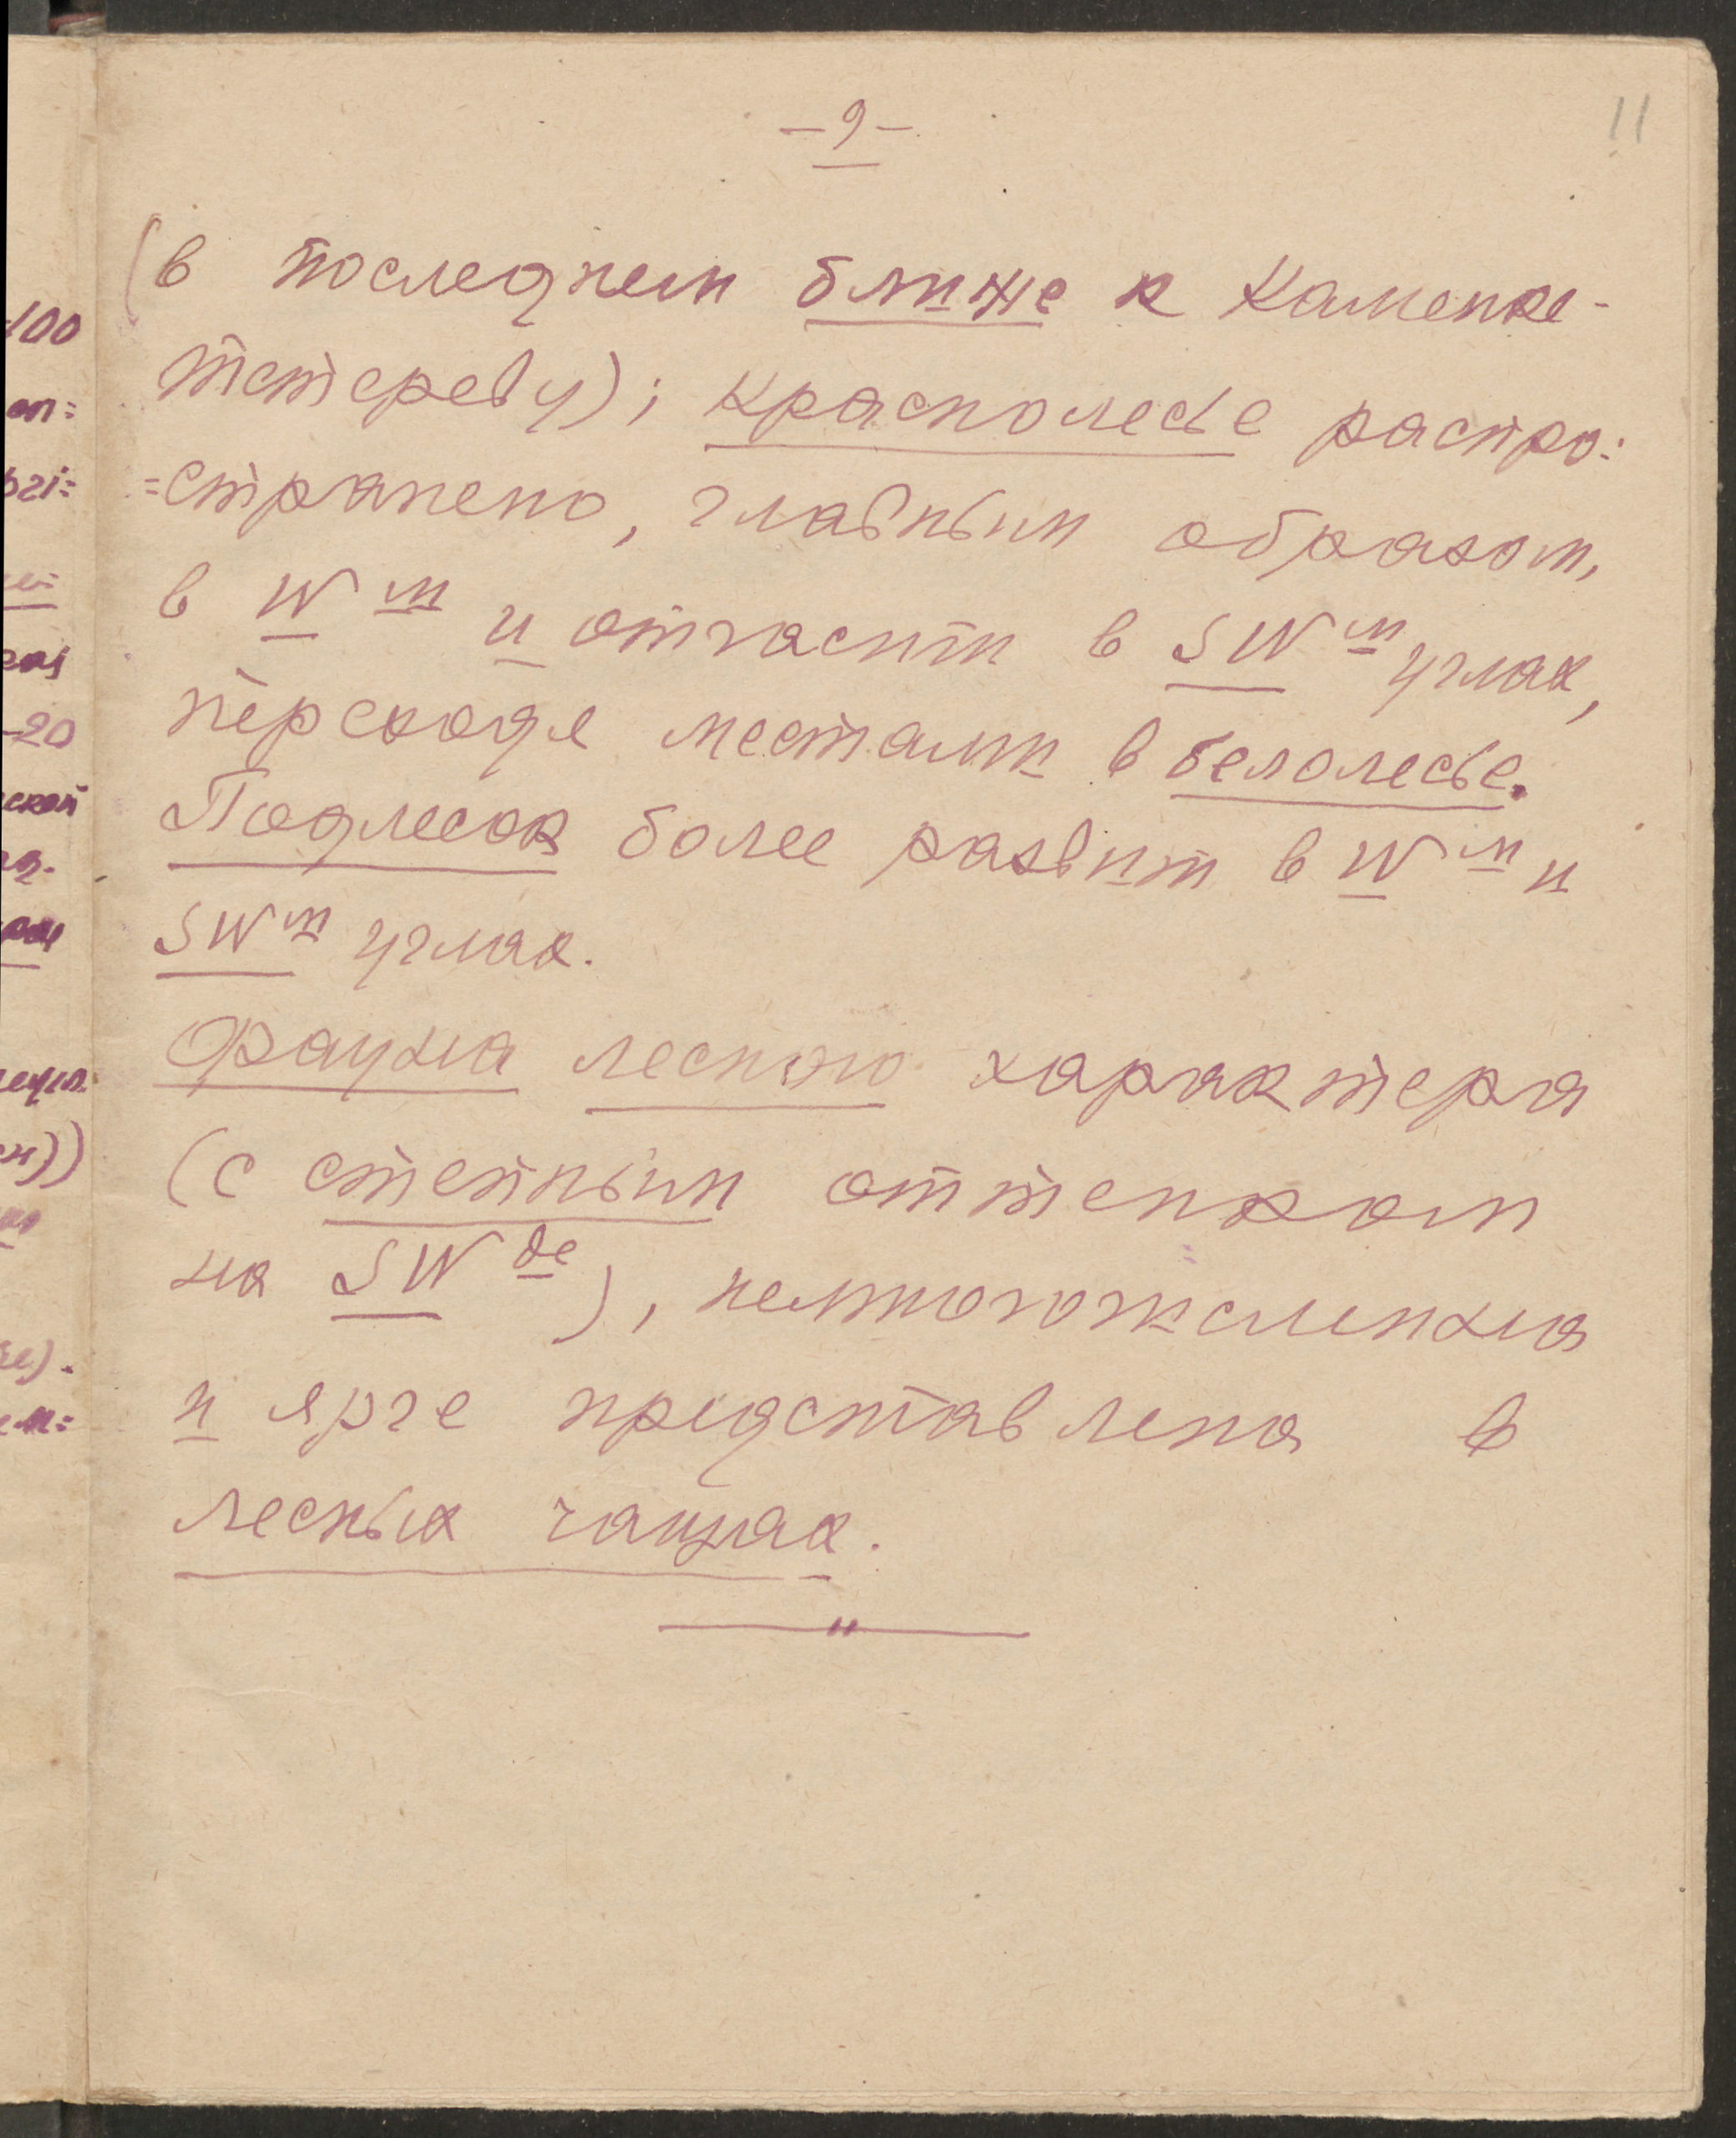 -9-
11
(в последнем ближе к Каменке-
тетереву); краснолесье распро:
=странено, главным образом,
в W м и отчасти в SW м углах,
переходя местами в белолесье.
Подлесок более развит в W м и
SW м углах.
Фауна лесного характера
(с степным оттенком
на SW де), немногочисленна
и ярче представлена в
лесных чащах.
"